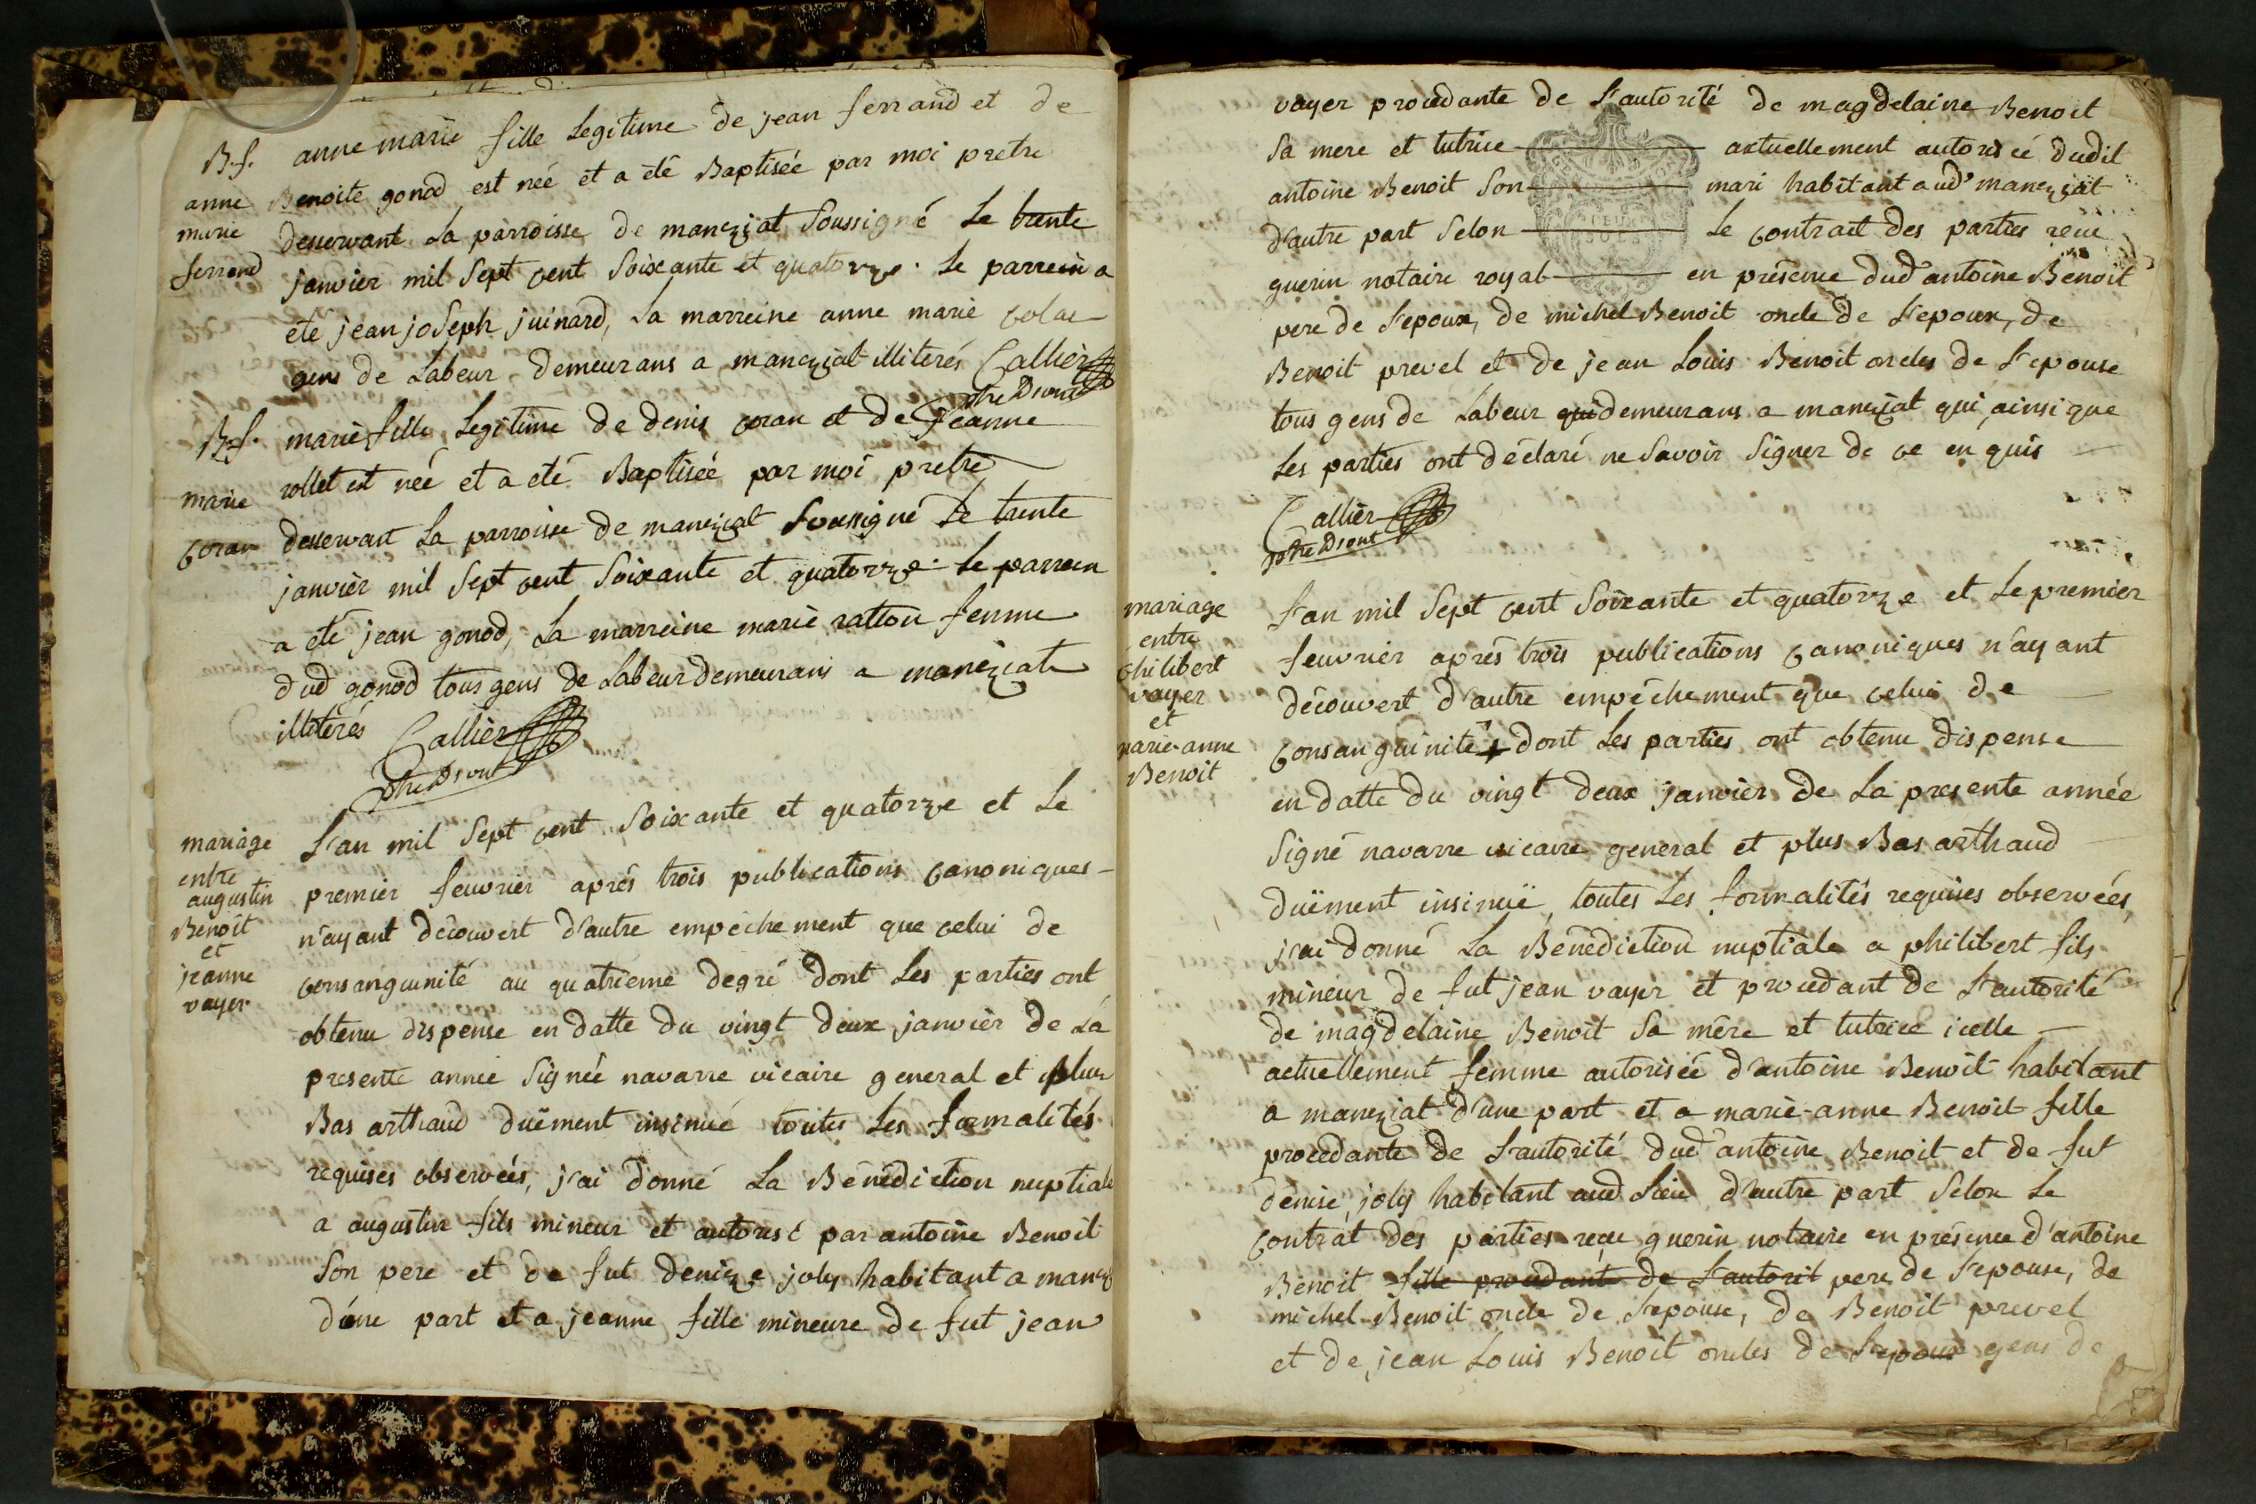 B.f.
anne
marie
ferrand
anne marie fille Legitime de jean ferrand et de
Benoite gonod est née et a eté Baptisée par moi pretre
desservant La parroisse de manezjat Soussigné Le trente
janvier mil Sept cent Soixante et quatorze. Le parrein a
eté jean joseph juinard, La marreine anne marie colas
gens de Labeur demeurans a manezjat illiterés Callier
ptre Dsvnt
B.f.
marie
coran
marie fille Legitime de denis coran et de Jeanne
rollet est née et a eté Baptisée par moi pretre
desservant La parroisse de manezjat Soussigné Le trente
janvier mil Sept cent Soixante et quatorze. Le parrein
a eté jean gonod, La marreine marie ratton femme
dud gonod tous gens de Labeur demeurans a manezjat
illiterés Callier
ptre Dsvnt
mariage
entre
augustin
Benoit
et
jeanne
vayer
L'an mil Sept cent Soixante et quatorze et Le
premier feuvrier aprés trois publications canoniques
n'ayant découvert d'autre empéchement que celui de
consanguinité au quatrieme degré dont Les parties ont
obtenu dispense en datte du vingt deux janvier de La
presente année Signée navarre vicaire general et plus
Bas arthaud duëment insinué toutes Les formalités
requises observées, j'ai donné La Bénédiction nuptiale
a augustin fils mineur et autorisé par antoine Benoit
Son pere et de fut denize joly habitant a manez
d'une part et a jeanne fille mineure de fut jean
vayer procedante de L'autorité de magdelaine Benoit
Sa mere et tutrice actuellement autorisée dudit
antoine Benoit Son mari habitant aud' manezjat
d'autre part Selon Le contract des parties recu
guerin notaire royal en présence dud' antoine Benoit
pere de L'epoux, de michel Benoit oncle de L'epoux, de
Benoit prevel et de jean Louis Benoit oncles de L'epouse
tous gens de Labeur qui demeurans a manezjat qui, ainsi que
Les parties ont déclaré ne Savoir Signer de ce enquis
Callier
ptre Dsvnt
mariage
entre
philibert
vayer
et
marie-anne
Benoit
L'an mil Sept cent Soixante et quatorze et Le premier
feuvrier aprés trois publications canoniques n'ayant
découvert d'autre empéchement que celui de
consanguinité dont Les parties ont obtenu dispense
en datte du vingt deux janvier de La presente année
Signé navarre vicaire general et plus Bas arthaud
duëment insinuë, toutes Les formalités requises observées,
j'ai donné La Bénédiction nuptiale a philibert fils
mineur de fut jean vayer et procedant de L'autorité
de magdelaine Benoit Sa mére et tutrice icelle
actuellement femme autorisée d'antoine Benoit habitant
a manezjat d'une part et a marie-anne Benoit fille
procedante de L'autorité dud' antoine Benoit et de fut
denise joly habitant aud Lieu d'autre part Selon Le
contrat des parties recu guerin notaire en présence d'antoine
Benoit fille procedant de L'autorit pere de L'epouse, de
michel Benoit oncle de L'epouse, de Benoit prevel
et de jean Louis Benoit oncles de L'epoux gens de